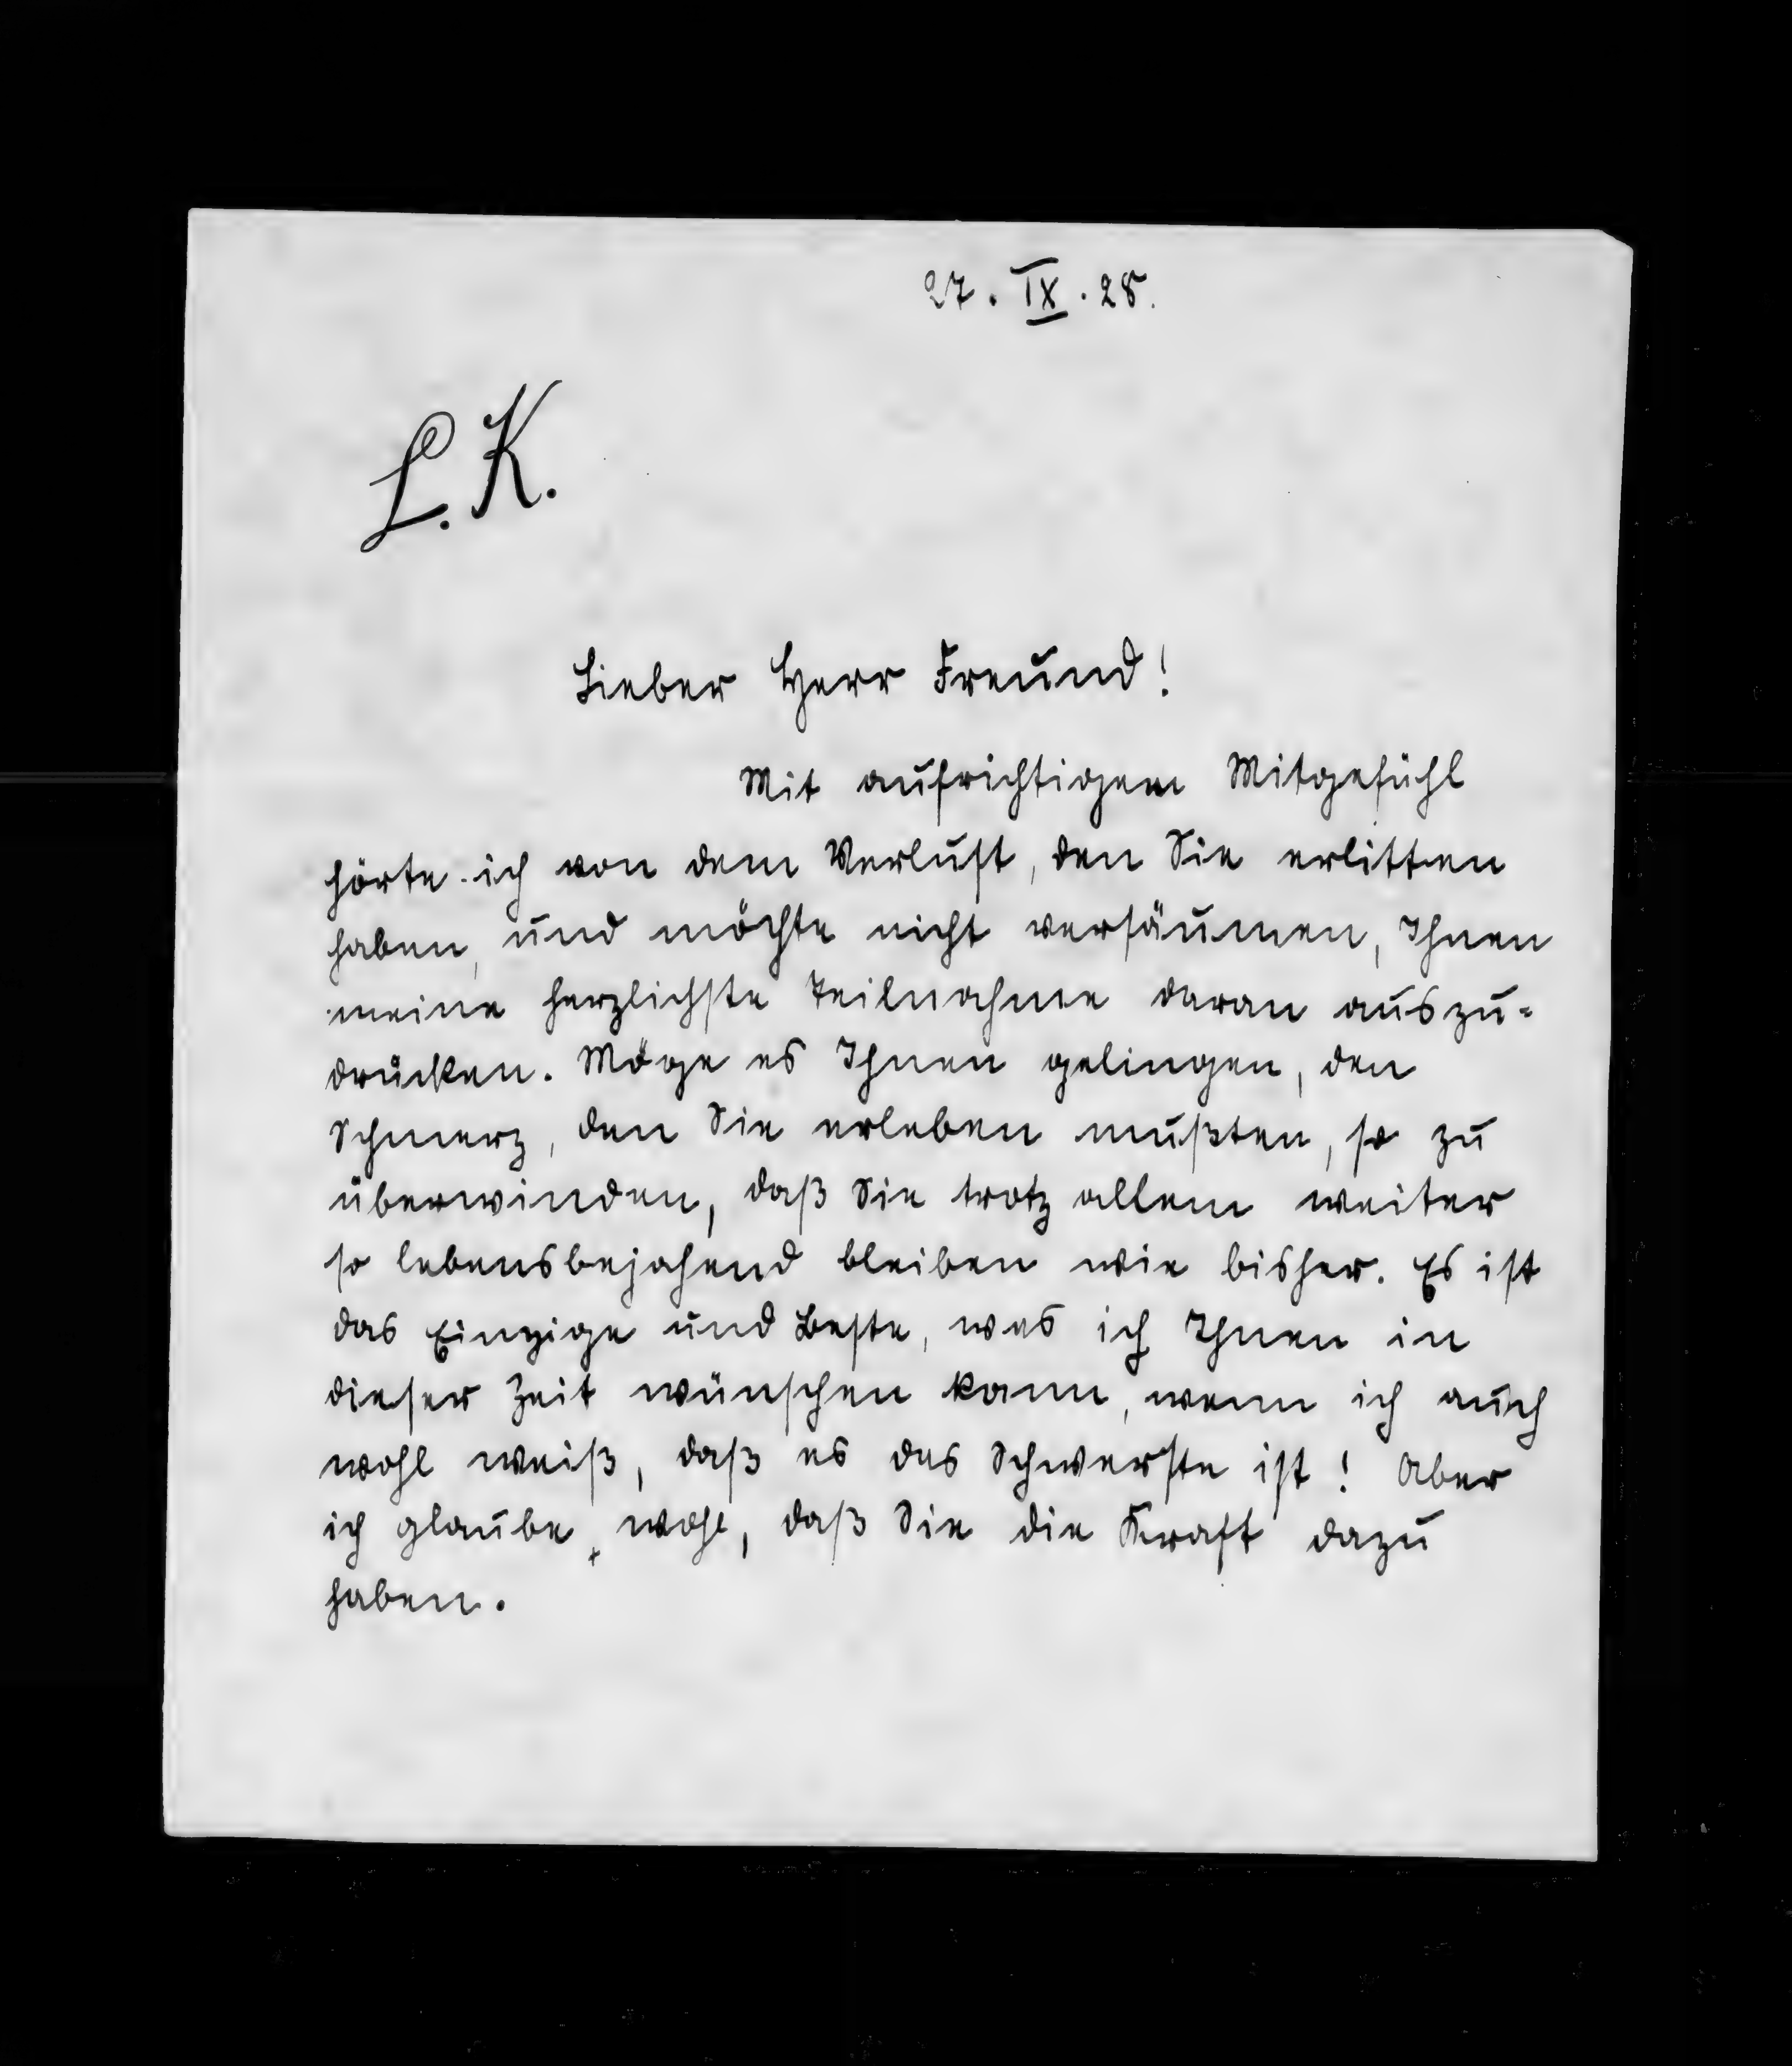 27. IX. 28.
L. K.
Lieber Herr Freund!
Mit aufrichtigem Mitgefühl
hörte ich von dem Verlust, den Sie erlitten
haben, und möchte nicht versäumen, Ihnen
meine herzlichste Teilnahme daran auszu-
drücken. Möge es Ihnen gelingen, den
Schmerz, den Sie erleben mußten, so zu
überwinden, daß Sie trotz allem weiter
so lebensbejahend bleiben wie bisher. Es ist
das Einzige und Beste, was ich Ihnen in
dieser Zeit wünschen kann, wenn ich auch
wohl weiß, daß es das Schwerste ist! Aber
ich glaube, wohl, daß Sie die Kraft dazu
haben.